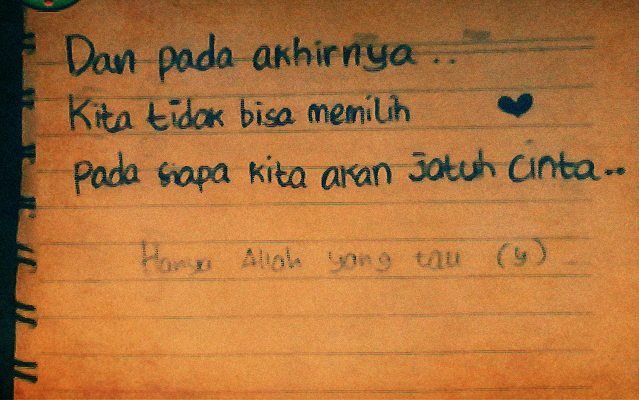 Dan pada akhirnya ..
Kita tidak bisa memilih ♥
Pada siapa kita akan jatuh cinta..
Hanya Allah yang tau (y)